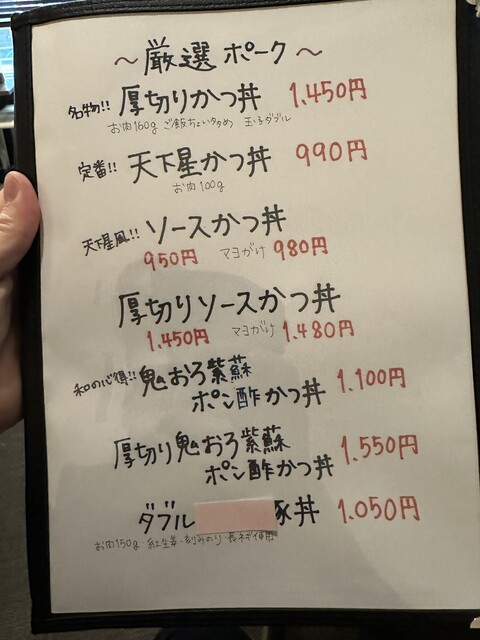 ～厳選ポーク～
名物!! 厚切りかつ丼 1,450円
お肉160g ご飯ちょい多め 玉子ダブル
定番!! 天下星かつ丼 990円
お肉100g
天下星風!! ソースかつ丼
950円 マヨがけ 980円
厚切りソースかつ丼
1,450円 マヨがけ 1,480円
和の心得!! 鬼おろ紫蘇
ポン酢かつ丼 1,100円
厚切り鬼おろ紫蘇
ポン酢かつ丼 1,550円
ダブル 豚丼 1,050円
お肉150g・紅生姜・刻みのり・長ネギ使用